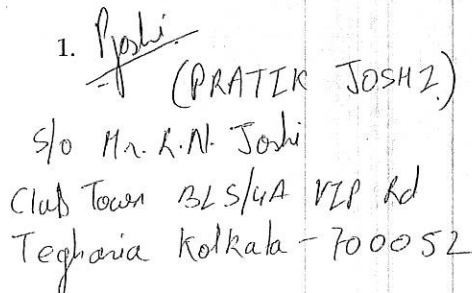 1. PJoshi
(PRATIK JOSHI)
S/o Mr. R.N. Joshi
Club Town BL5/4A VIP Rd
Tegharia Kolkata - 700052